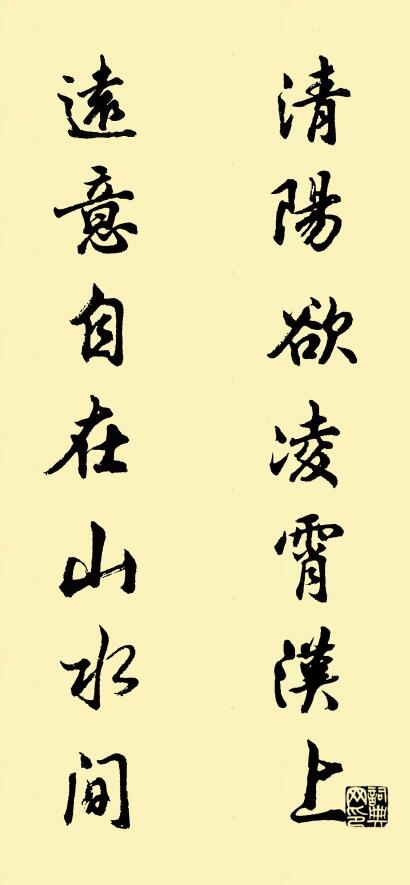 清陽欲凌霄漢上
遠意自在山水间
詞典网印